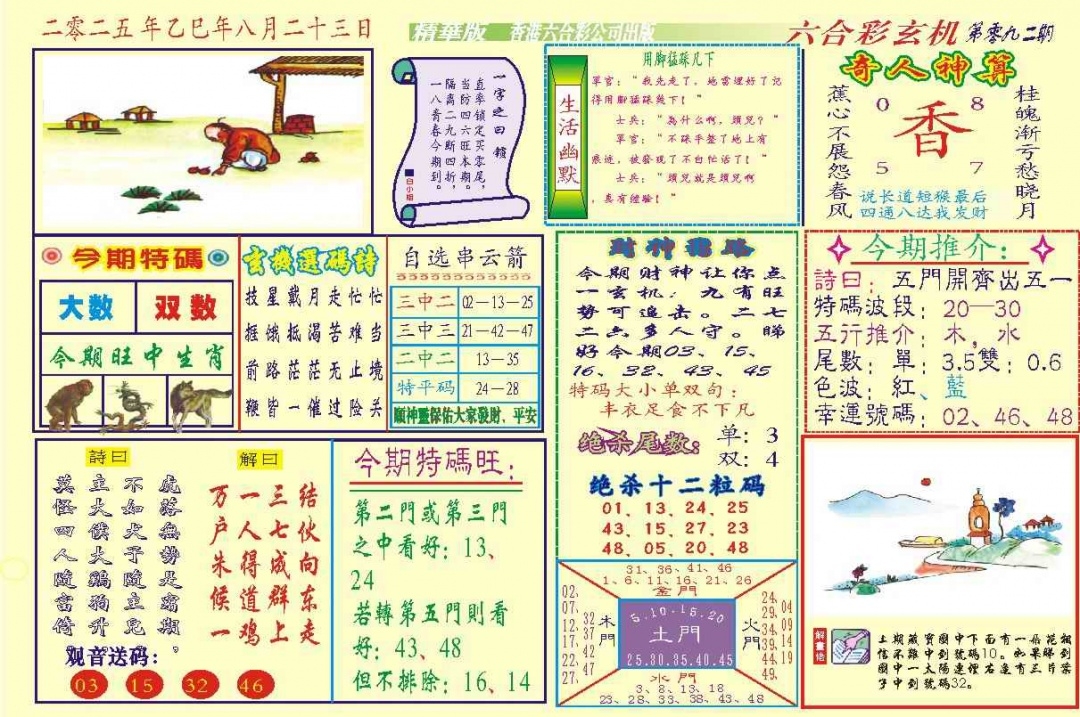 二零二五年乙巳年八月二十三日
精華版 香港六合彩公司出版
六合彩玄机 第零九二期
一字之曰：鎖
直率鎖定买零尾，
当防四六旺本期。
隔离二九断四折，
一八青春今期到。
白小姐
生活幽默
用脚猛踩几下
軍官：“我先走了，地雷埋好了记
得用脚猛踩几下！”
士兵：“為什么啊，頭兒？”
軍官：“不踩平整了地上有
痕迹，被發現了不白忙活了！”
士兵：“頭兒就是頭兒啊
，真有經驗！”
奇人神算
蕉心不展怨春风
0 8
香
5 7
桂魄渐亏愁晓月
说长道短猴最后
四通八达我发财
今期特碼
大数 双数
今期旺中生肖
玄機選碼詩
披星戴月走忙忙
捱饿抵渴苦难当
前路茫茫无止境
鞭皆一催过险关
自选串云箭
三中二 02—13—25
三中三 21—42—47
二中二 13—35
特平码 24—28
順神靈保佑大家發財、平安
財神龍路
今期财神让你点
一玄机：九有旺
势可追击。二七
二六多人守。睇
好今期03、15、
16、32、43、45
特码大小单双句：
丰衣足食不下凡
绝杀尾数：
单：3
双：4
绝杀十二粒码
01、13、24、25
43、15、27、23
48、05、20、48
今期推介：
詩曰：五門開齊出五一
特碼波段：20—30
五行推介：木，水
尾數：單：3.5雙：0.6
色波：紅、藍
幸運號碼：02、46、48
詩曰
虎落無勢是霜期，
不如犬子隨主兒
主大僕大鷄狗升
莫怪四人隨富倚。
解曰
结伙向东走
三七成群上
一人得道鸡
万户朱候一
观音送码：
03 15 32 46
今期特碼旺：
第二門或第三門
之中看好：13、
24
若轉第五門則看
好：43、48
但不排除：16、14
31、36、41、46
1、6、11、16、21、26
金門
02、07、12、17、22、27、
32、37、42、47
木門
5.10.15.20
土門
25.30.35.40.45
火門
24、29、34、39、44、49
04、09、14、19
水門
3、8、13、18
23、28、33、38、43、48
解畫佬
上期藏寶圖中下面有一朵花相
信不難中到號碼10。如果睇到
圖中一太陽連煙右邊有三片葉
子中到號碼32。